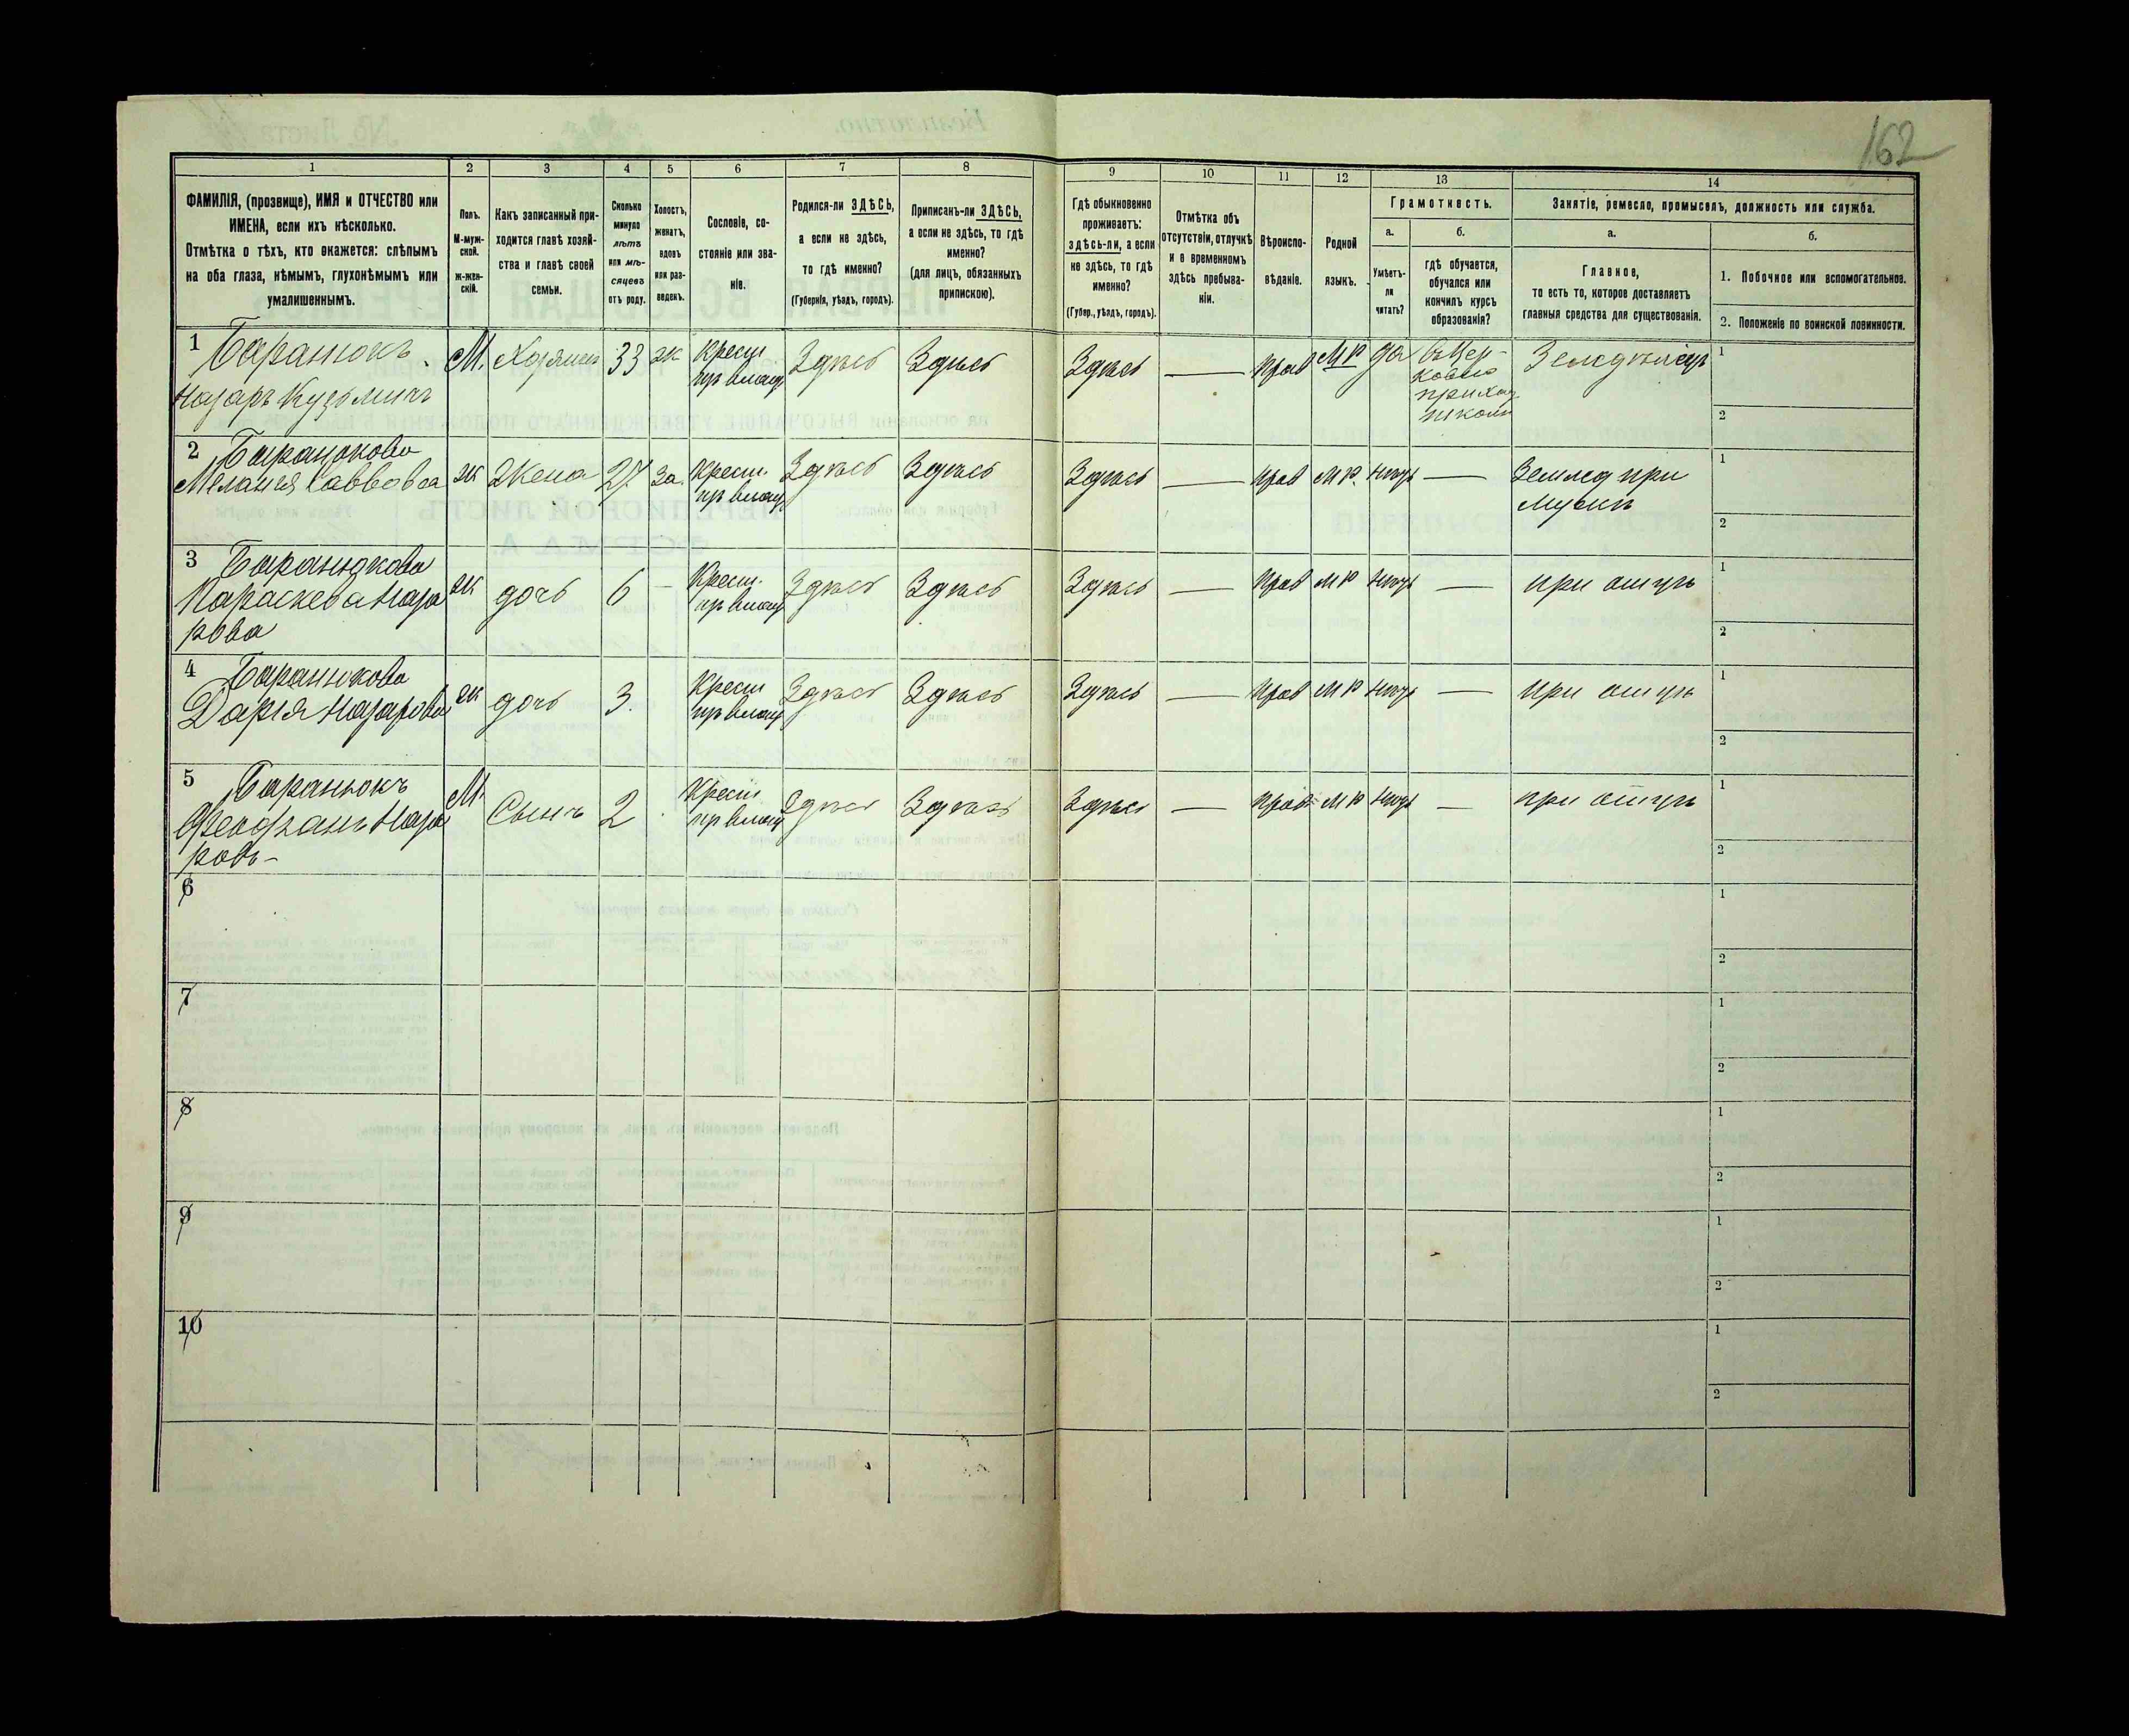 162
1
2
3
4
5
6
7
8
9
10
11
12
13
14
ФАМИЛІЯ, (прозвище), ИМЯ и ОТЧЕСТВО или
ИМЕНА, если ихъ нѣсколько.
Отмѣтка о тѣхъ, кто окажется: слѣпымъ
на оба глаза, нѣмымъ, глухонѣмымъ или
умалишеннымъ.
Полъ.
М-муж-
ской.
ж-жен-
скій.
Какъ записанный при-
ходится главѣ хозяй-
ства и главѣ своей
семьи.
Сколько
минуло
лѣтъ
или мѣ-
сяцевъ
отъ роду.
Холостъ,
женатъ,
вдовъ
или раз-
веденъ.
Сословіе, со-
стояніе или зва-
ніе.
Родился-ли ЗДѢСЬ,
а если не здѣсь,
то гдѣ именно?
(Губернія, уѣздъ, городъ).
Приписанъ-ли ЗДѢСЬ,
а если не здѣсь, то гдѣ
именно?
(для лицъ, обязанныхъ
припискою).
Гдѣ обыкновенно
проживаетъ:
здѣсь-ли, а если
не здѣсь, то гдѣ
именно?
(Губер., уѣздъ, городъ).
Отмѣтка объ
отсутствіи, отлучкѣ
и о временномъ
здѣсь пребыва-
ніи.
Вѣроиспо-
вѣданіе.
Родной
языкъ.
Грамотность.
а.
Умѣетъ-
ли
читать?
б.
гдѣ обучается,
обучался или
кончилъ курсъ
образованія?
Занятіе, ремесло, промыселъ, должность или служба.
а.
Главное,
то есть то, которое доставляетъ
главныя средства для существованія.
б.
1. Побочное или вспомогательное.
2. Положеніе по воинской повинности.
1 Баранюкъ
Назаръ Кузьмичъ
М.
Хозяинъ
33
ж
Крест
пр влад
Здѣсь
Здѣсь
Здѣсь
—
прав
М р
да
въ Цер-
ковно
приход
школѣ
Земледѣлецъ
1
2
2 Баранюкова
Меланія Саввовна
ж
Жена
27
за.
Крест.
пр влад
Здѣсь
Здѣсь
Здѣсь
—
прав
М р.
нѣтъ
—
Землед при
мужѣ
1
2
3 Баранюкова
Параскева Наза
рова
ж
дочь
6
—
Крест.
пр влад
Здѣсь
Здѣсь
Здѣсь
—
прав
М р
нѣтъ
—
при отцѣ
1
2
4 Баранюкова
Дарія Назарова
ж
дочь
3.
Крест
пр влад
Здѣсь
Здѣсь
Здѣсь
—
прав
М р
нѣтъ
—
при отцѣ
1
2
5 Баранюкъ
Феофанъ Наза
ровъ -
М.
Сынъ
2
Крест
пр влад
Здѣсь
Здѣсь
Здѣсь
—
прав
М р
нѣтъ
—
при отцѣ
1
2
6
1
2
7
1
2
8
1
2
9
1
2
10
1
2